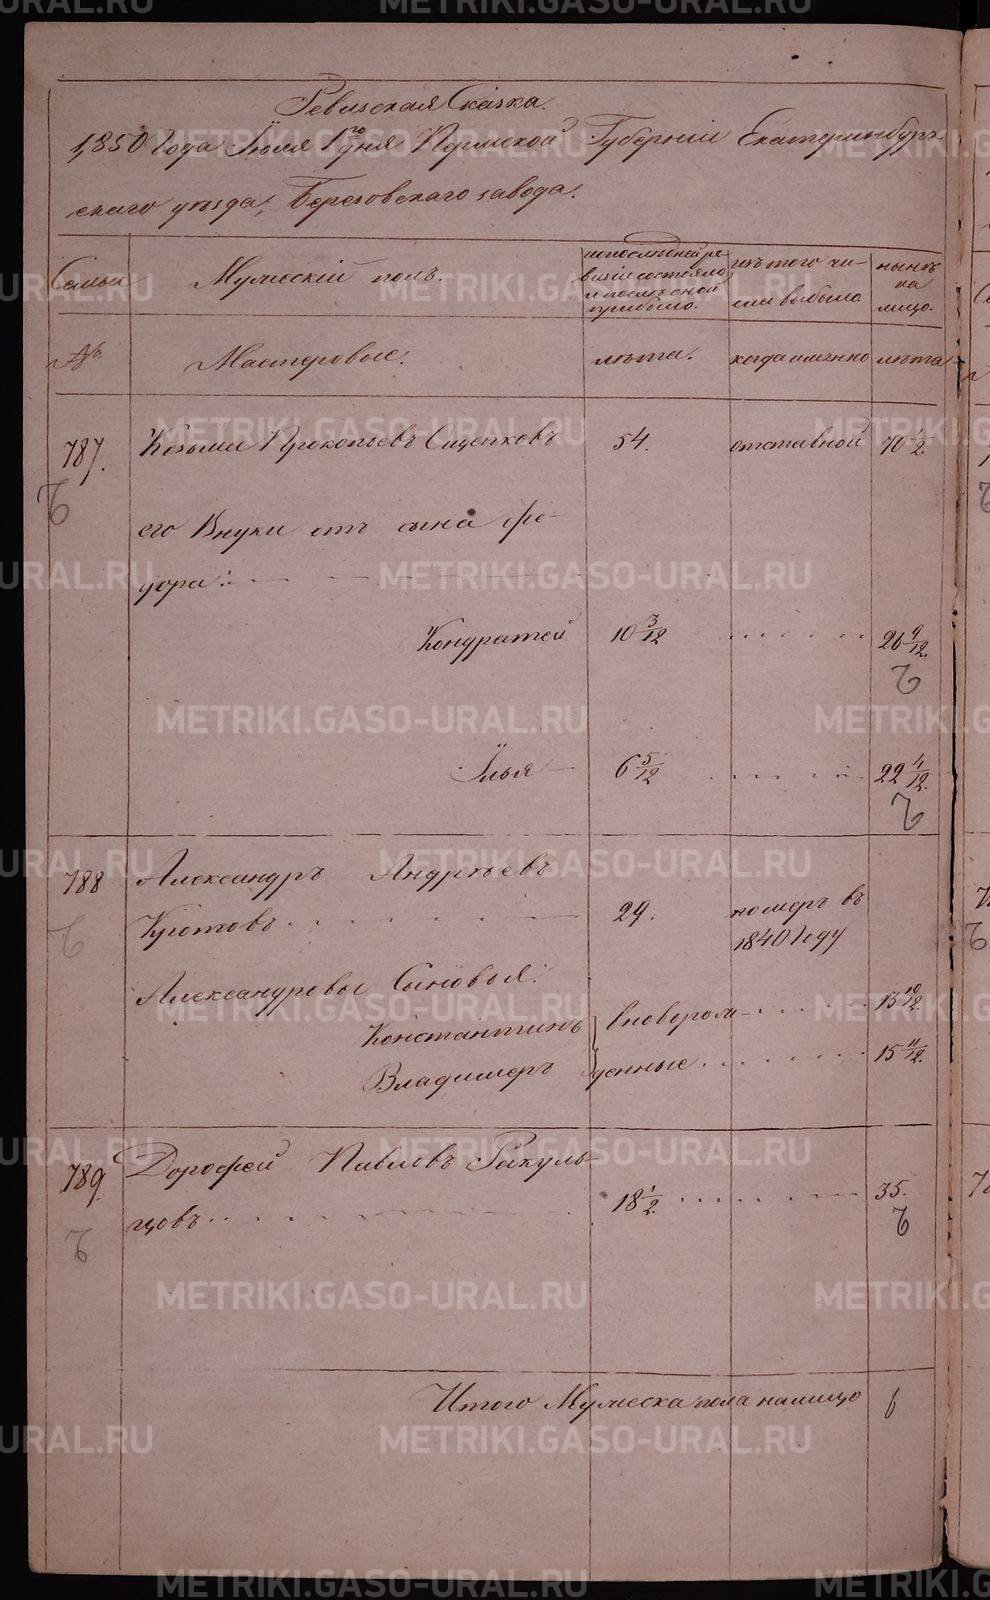 Ревизская Сказка.
1850 года Іюля 1го дня Пермской Губерніи Екатеринбург-
скаго уѣзда, Березовскаго завода.
Семьи
Мужескій полъ.
по последней ре-
визіи состояло
и после оной
прибыло.
изъ того чи-
сла выбыло
нынѣ
на
лицо.
№
Мастеровые.
лѣта.
когда именно
лѣта
787.
Козьма Прокопьевъ Сищенковъ
54.
отставной
70 1/2.
его Внуки отъ сына Фе-
дора:
Кондратей
10 3/12
26 9/12.
Илья
6 5/12
22 11/12.
788
Александръ Андреевъ
Кротовъ
29.
номеръ въ
1840 году
Александровы Сыновья:
Константинъ
вновьрож-
13 10/12.
Владимеръ
денные
15 11/12.
789.
Дорофей Павловъ Ракуль-
цовъ
18 1/2.
35.
Итого Мужеска пола налицо
6
METRIKI.GASO-URAL.RU